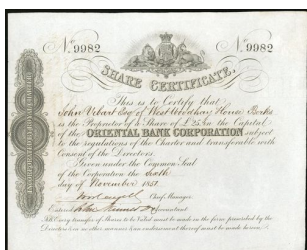 No. 9982 No. 9982
SHARE CERTIFICATE.
This is to Certify that
John Vibart Esqr of West Woodhay House Berks
is the Proprietor of a Share of £25 in the Capital
of the ORIENTAL BANK CORPORATION subject
to the regulations of the Charter and transferable with
Consent of the Directors.
Given under the Common Seal
of the Corporation the Sixth
day of November 1851.
Chief Manager
Entered Accountant
N.B. Every transfer of Shares to be Valid must be made in the form prescribed by the
Directors & no other means & no endorsement thereof must be made hereon